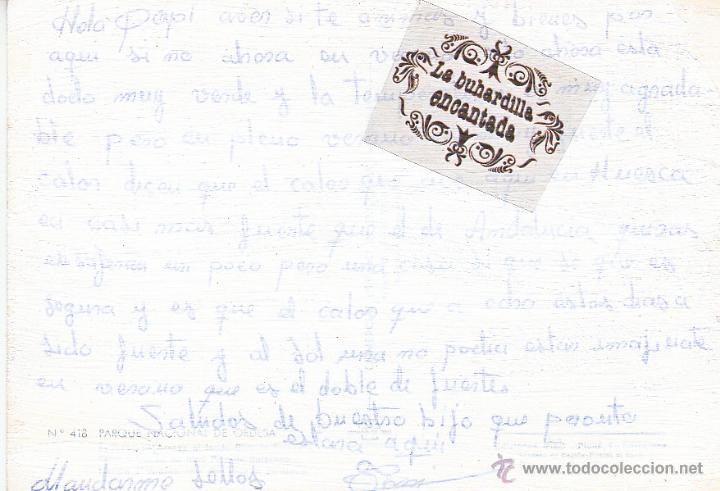 Hola Pepi aver si te animas y bienes por
aqui si no ahora en ahora esta
dodo muy verde y la muy agrada-
ble pero en pleno verano fuerte el
calor dicen que el calor que aqui en Huesca
es casi mas fuente que el de Andalucia quizas
un poco pero una cosa si que se que es
segura y es que el calor que a odro estos dias a
sido fuerte y al sol una no podia estar imajinate
en verano que es el doble de fuertes
Saludos de buestro Bijo que peronto
estara aqui
Mandarme Sellos
La buhardilla
encantada
Nº 418 PARQUE NACIONAL DE ORDESA
todocoleccion
www.todocoleccion.net